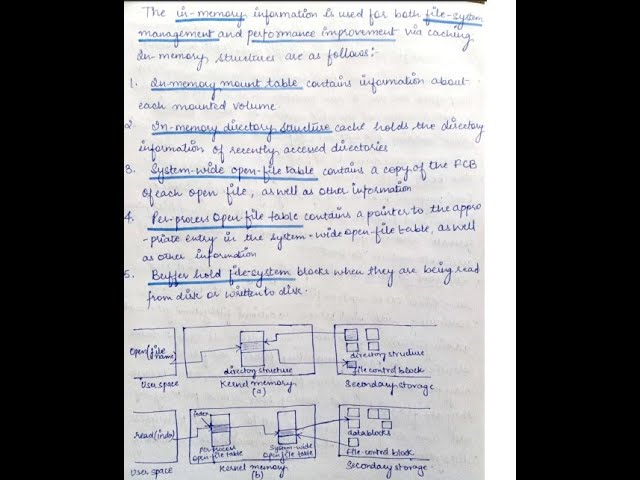 The in-memory information is used for both file-system
management and performance improvement via caching
In-memory structures are as follows:-
1. In-memory mount table contains information about
each mounted volume
2. In-memory directory structure cache holds the directory
information of recently accessed directories
3. System-wide open-file table contains a copy of the FCB
of each open file, as well as other information
4. Per-process Open file table contains a pointer to the appro
-priate entry in the system-wide open-file table, as well
as other information
5. Buffer hold file-system blocks when they are being read
from disk or written to disk.
Open(file name)
directory structure
directory structure
file control block
User space
Kernel memory
Secondary storage
(a)
index
read(index)
Per process open file table
System-wide open file table
data blocks
file-control block
User space
Kernel memory
Secondary storage
(b)